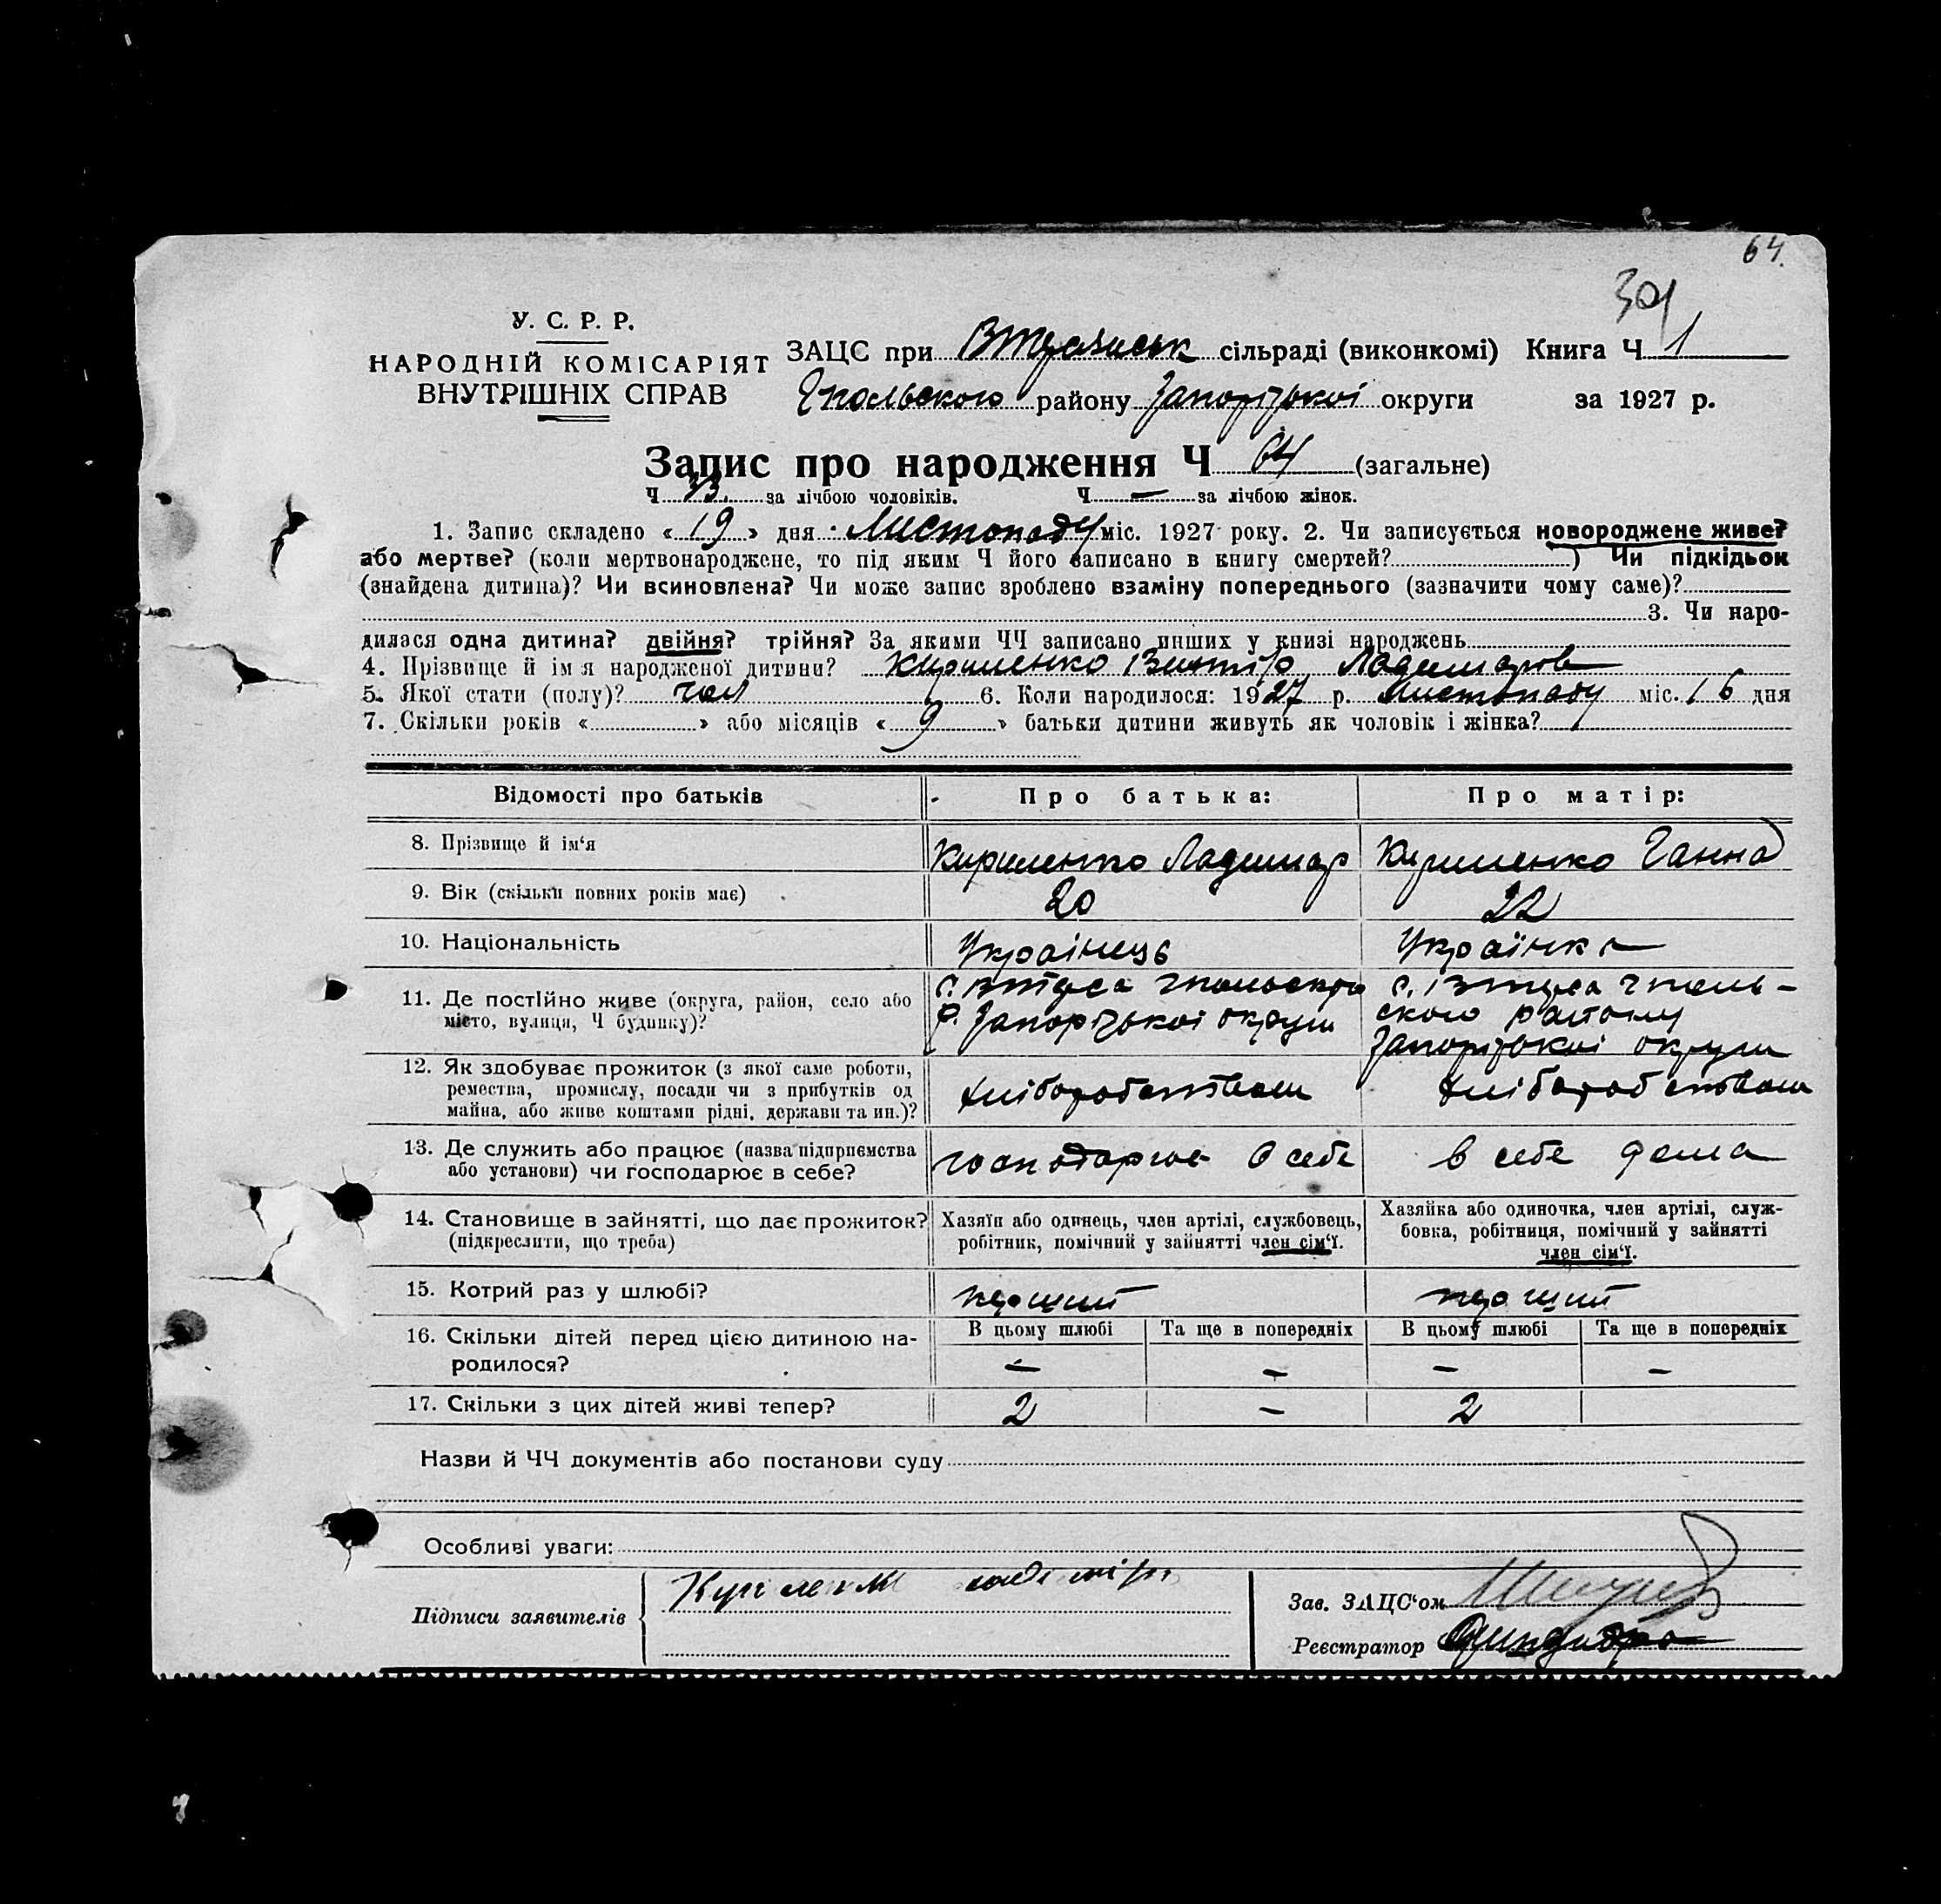 64.
У. С. Р. Р.
НАРОДНІЙ КОМІСАРІЯТ
ВНУТРІШНІХ СПРАВ
ЗАЦС при сільраді (виконкомі) Книга Ч 1
району Запорізької округи за 1927 р.
Запис про народження Ч 64 (загальне)
Ч 33. за лічбою чоловіків. Ч — за лічбою жінок.
1. Запис складено « 19 » дня Листопаду міс. 1927 року. 2. Чи записується новороджене живе?
або мертве? (коли мертвонароджене, то під яким Ч його записано в книгу смертей? ) Чи підкідьок
(знайдена дитина)? Чи всиновлена? Чи може запис зроблено взаміну попереднього (зазначити чому саме)?
3. Чи наро-
дилася одна дитина? двійня? трійня? За якими ЧЧ записано инших у книзі народжень
4. Прізвище й ім я народженої дитини? Кириленко
5. Якої стати (полу)? чол 6. Коли народилося: 1927 р. Листопаду міс. 16 дня
7. Скільки років « » або місяців « 9 » батьки дитини живуть як чоловік і жінка?
Відомості про батьків Про батька: Про матір:
8. Прізвище й ім'я Кириленко Ладимар Кириленко Ганна
9. Вік (скільки повних років має) 20 22
10. Національність Українець Українка
11. Де постійно живе (округа, район, село або
місто, вулиця, Ч будинку)?
Запорізької округи
ського району
Запорізької округи
12. Як здобуває прожиток (з якої саме роботи,
ремества, промислу, посади чи з прибутків од
майна, або живе коштами рідні, держави та ин.)?
хліборобством хліборобством
13. Де служить або працює (назва підприємства
або установи) чи господарює в себе?
господарює в себе в себе дома
14. Становище в зайнятті, що дає прожиток?
(підкреслити, що треба)
Хазяїн або одинець, член артілі, службовець,
робітник, помічний у зайнятті член сім'ї.
Хазяйка або одиночка, член артілі, служ-
бовка, робітниця, помічний у зайнятті
член сім'ї.
15. Котрий раз у шлюбі? перший перший
16. Скільки дітей перед цією дитиною на-
родилося?
В цьому шлюбі Та ще в попередніх В цьому шлюбі Та ще в попередніх
— — — —
17. Скільки з цих дітей живі тепер? 2 — 2
Назви й ЧЧ документів або постанови суду
Особливі уваги:
Підписи заявителів
Зав. ЗАЦС'ом
Реєстратор